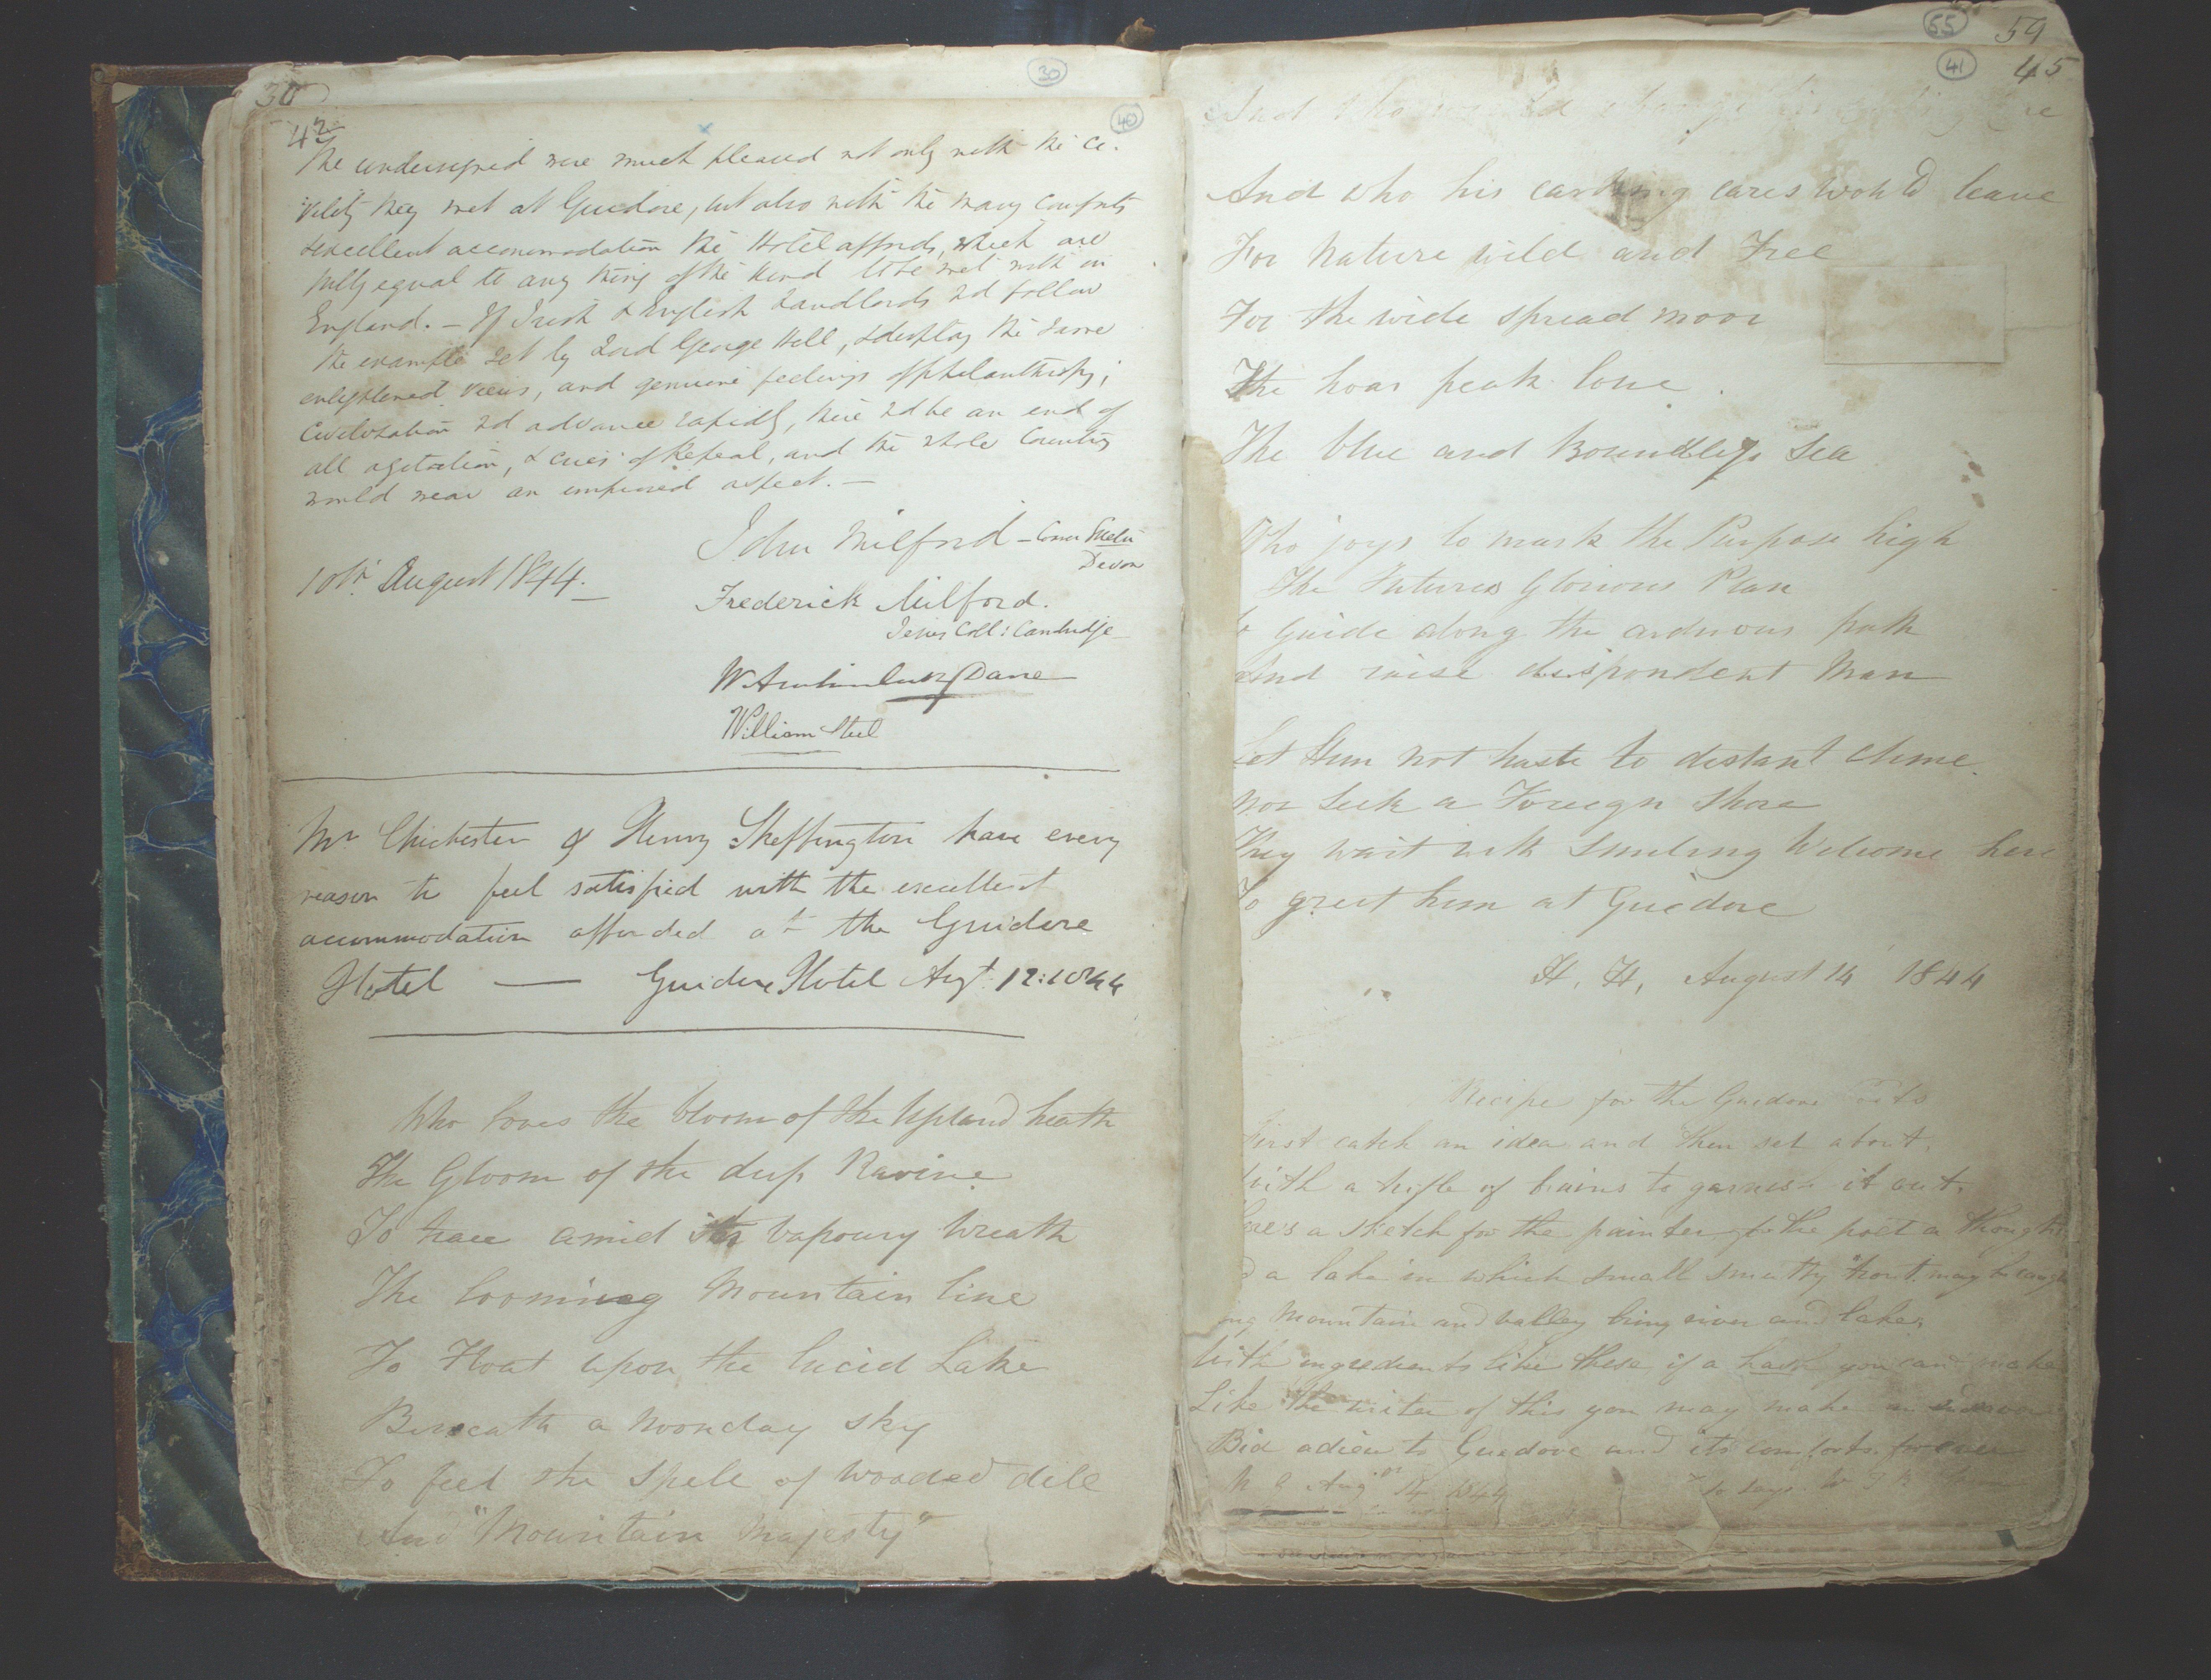 30
30
42
40
The undersigned were much pleased not only with the ci-
vility they met at Gueedore, but also with the many comforts
& excellent accommodation the Hotel affords, which are
fully equal to any thing of the kind to be met with in
England. — If Irish & English Landlords wd follow
the example set by Lord George Hill, & display the same
enlightened views, and genuine feelings of philanthropy;
Civilization wd advance rapidly, there wd be an end of
all agitation, & cries of Repeal, and the whole Country
would wear an improved aspect. —
John Milford —
Devon
10th August 1844.
Frederick Milford.
Jesus Coll: Cambridge
Dane
William Steel
Mr Chichester & Henry Skeffington have every
reason to feel satisfied with the excellent
accommodation afforded at the Guidore
Hotel — Guidore Hotel Augt 12: 1844
Who loves the bloom of the Upland heath
The Gloom of the deep Ravine
To trace amid its vapoury Wreath
The looming Mountain line
To Float upon the lucid Lake
Beneath a Noonday sky
To feel the Spell of wooded dell
And "Mountain Majesty"
55 59
41 45
And who
And who his carking cares would leave
For Nature wild and Free
For the wide spread moor
The hoar peak lone
The blue and Boundless Sea
Who joys to mark the Purpose high
The Futures Glorious Plan
Guide along the arduous path
And raise despondent Man
Let Him not haste to distant clime
Nor Seek a Foreign Shore
They wait with Smiling Welcome here
To greet him at Guedore
H. H. August 14 1844
Recipe for the Guedore
First catch an idea and then set about
With a trifle of brains to garnish it out.
a sketch for the painter for the poet a thought
a lake in which small smutty trout may be caught
Mountain and valley bring river and lake
With ingredients like these if a hash you can make
Like the writer of this you may make an
Bid adieu to Guedore and its comforts forever
Aug 14 1844 So says W